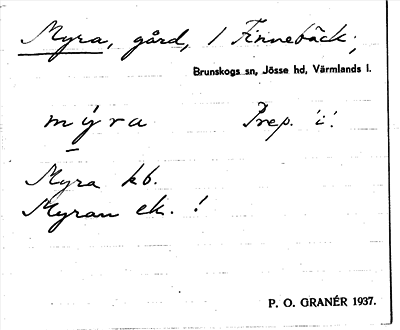 Myra, gård, 1 Finnebäck;
Brunskogs sn, Jösse hd, Värmlands l.
mýra Prep. 'i'.
Myra kb.
Myran ek. !
P. O. GRANÉR 1937.